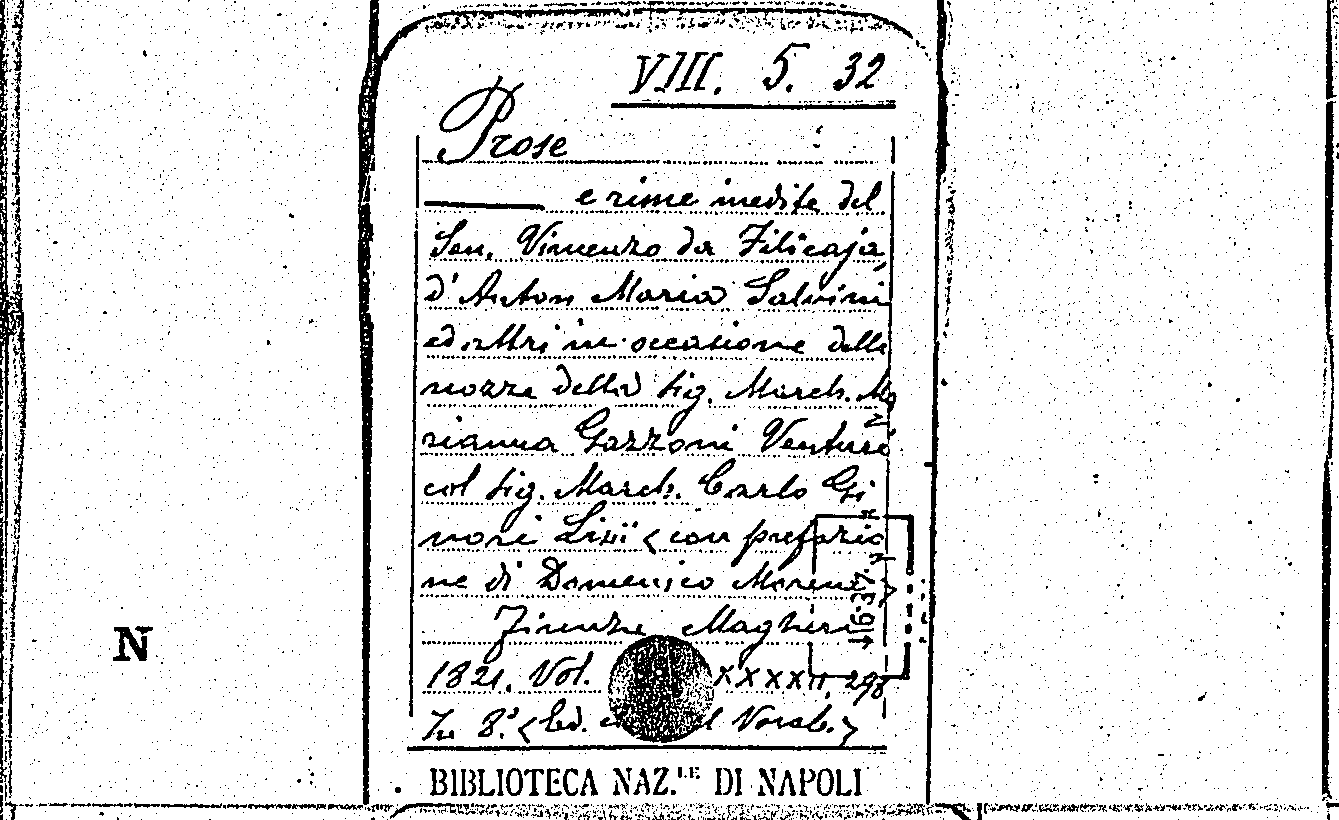 VIII. 5. 32
Prose
e rime inedite del
Sen. Vincenzo da Filicaja,
d'Anton Maria Salvini
ed altri in occasione delle
nozze della Sig. March. Ma
rianna Garzoni Venturi
col Sig. March. Carlo Gi
nori Lisci (con prefazio
ne di Domenico Moreni)
Firenze Magheri
1821. Vol. XXXXII, 298
In 8.º (Ed. Vocab.)
1637
N
BIBLIOTECA NAZ.LE DI NAPOLI